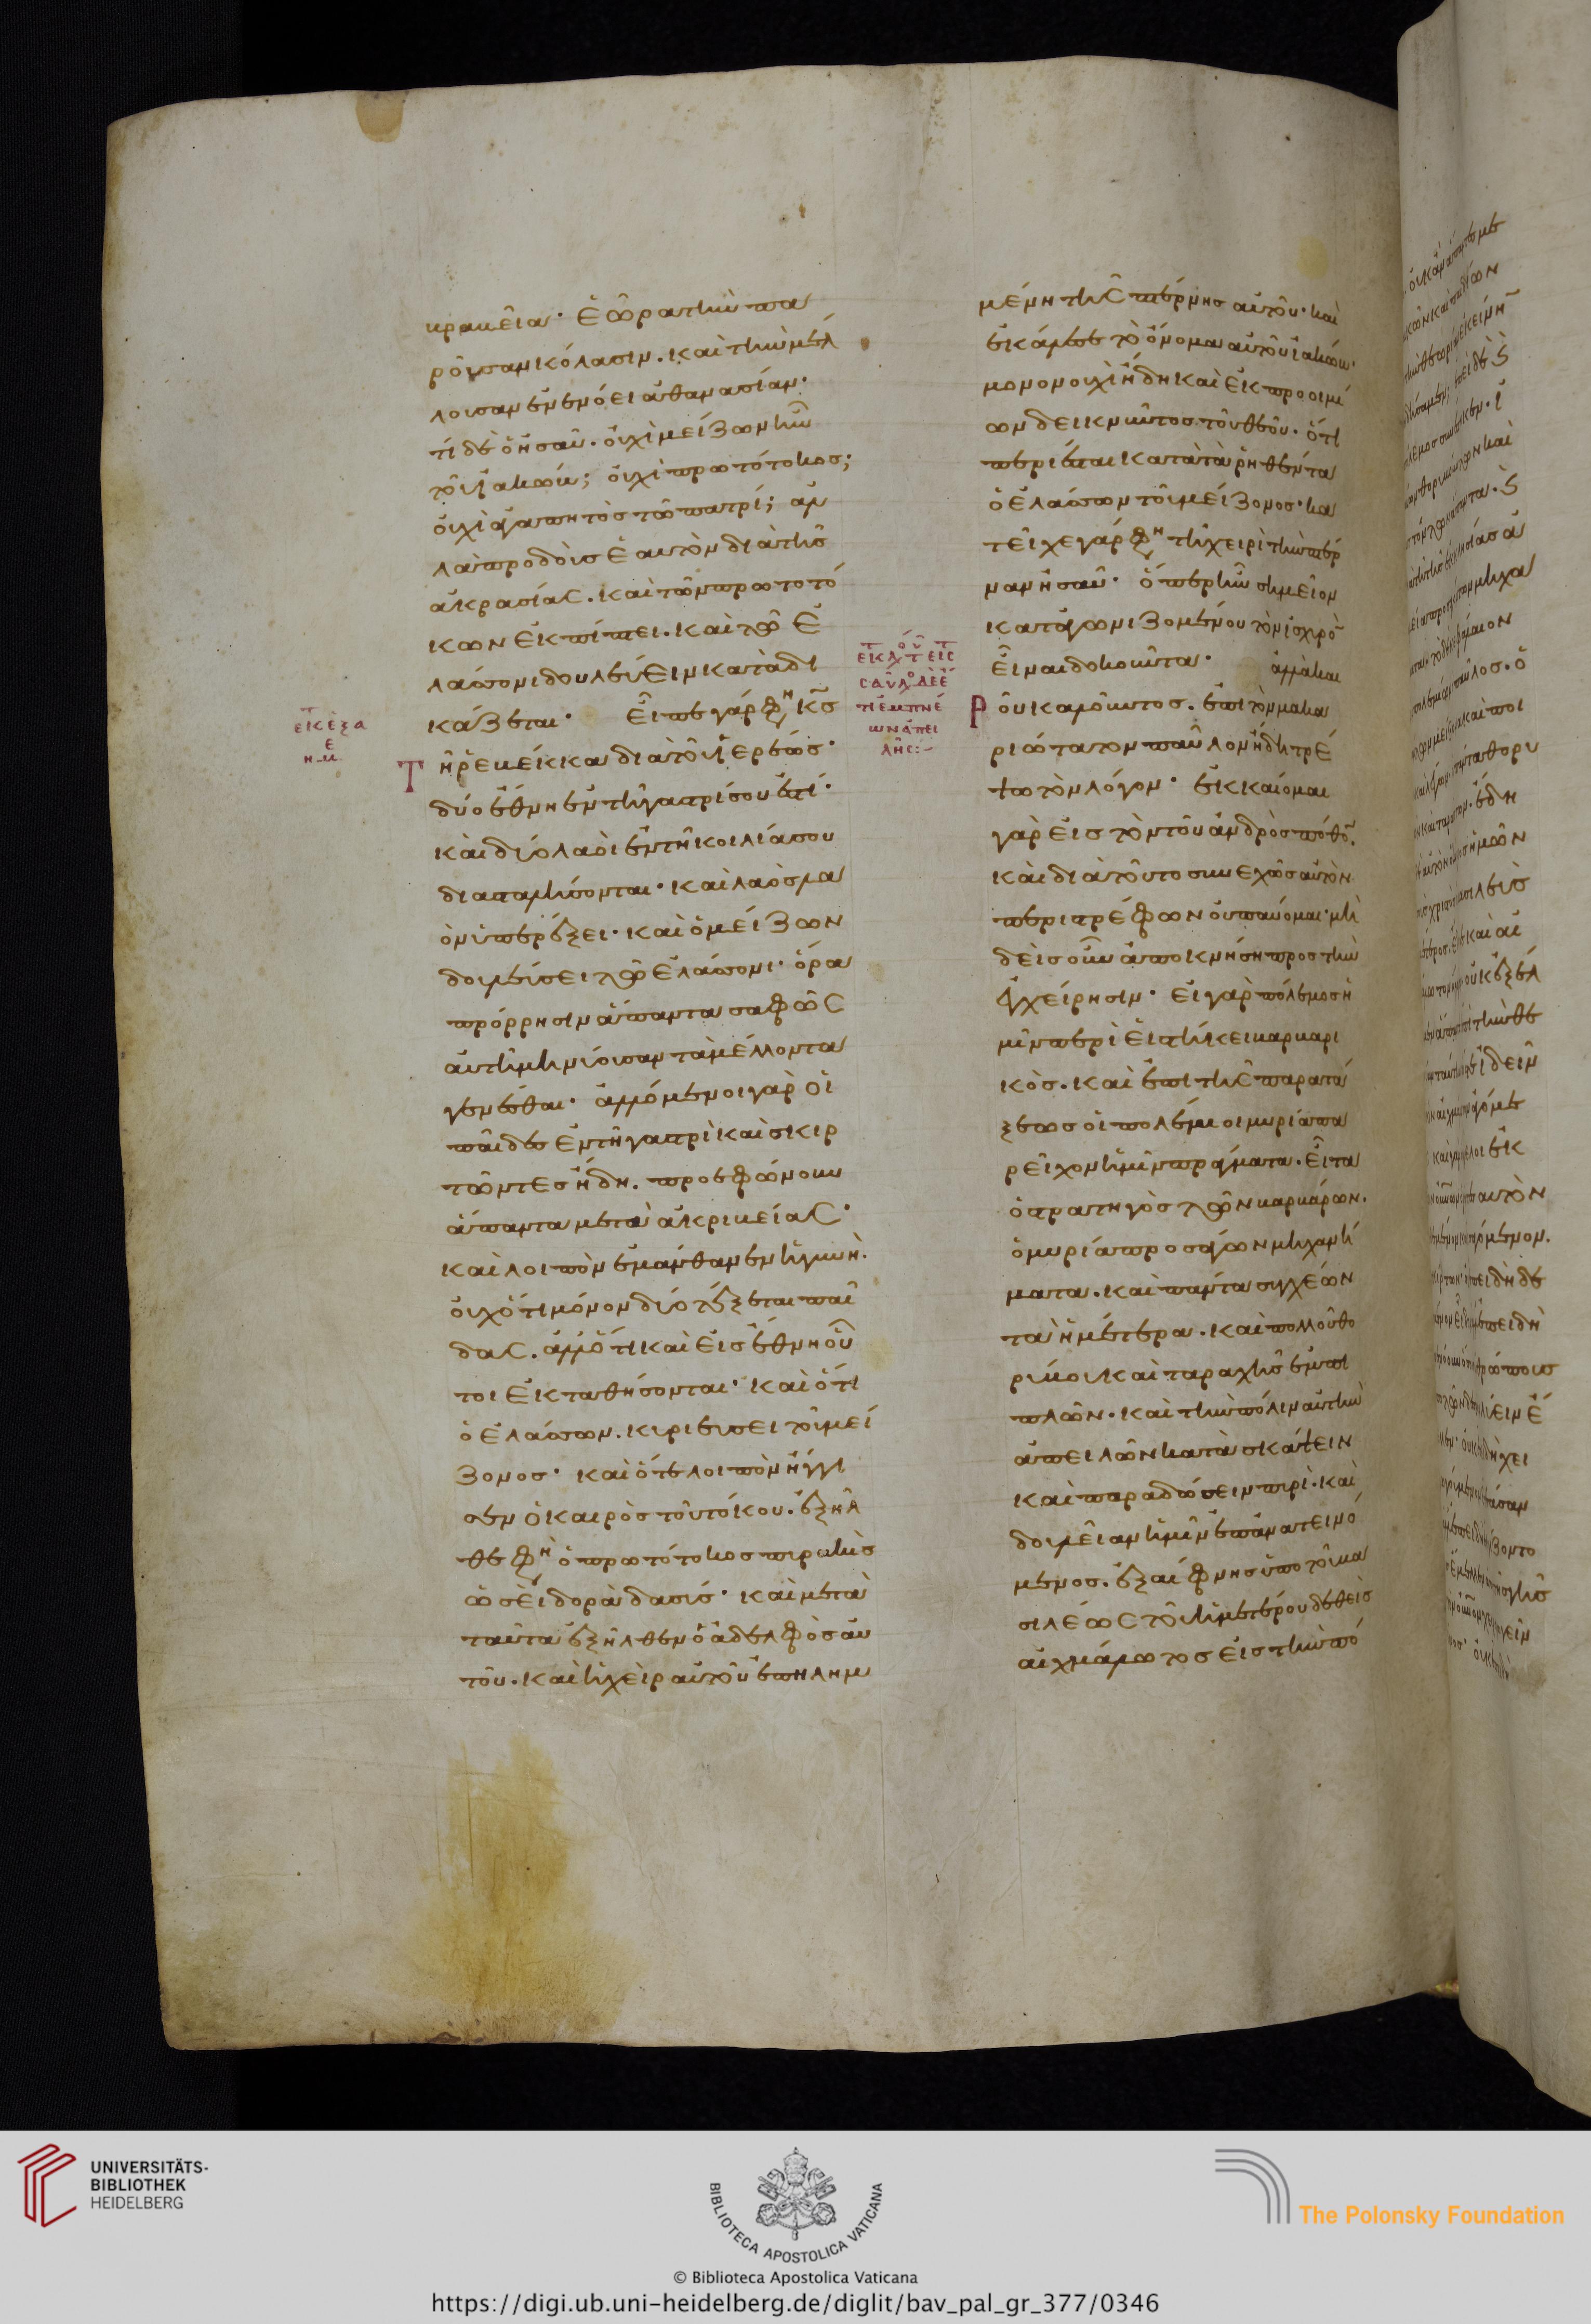 βραβεῖα· ἑώρα τὴν πα
ροῦσαν κόλασιν. καὶ τὴν μέλ
λουσαν ἐνενόει ἀθανασίαν·
τί δὲ ὁ ἠσαῦ. οὐχὶ μείζων ἦν
τοῦ ἰακώβ; οὐχὶ πρωτότοκος;
οὐχὶ ἀγαπητὸς τῶ πατρί; ἀλ
λὰ προδοὺς ἑαυτὸν διὰ τῆς
ἀκρασίας. καὶ τῶν πρωτοτό
κων ἐκπίπτει. καὶ τῶ ἐ
λάσσονι δουλεύειν καταδι
κάζεται· εἶπε γάρ φη κς
τῆ ῥεβέκκα διὰ τοῦ ἱερέως·
δύο ἔθνη ἐν τῆ γαστρί σου ἐστί·
καὶ δύο λαοὶ ἐν τῆ κοιλία σου
διασταλήσονται· καὶ λαὸς λα
οῦ ὑπερέξει· καὶ ὁ μείζων
δουλεύσει τῶ ἐλάσσονι· ὅρα
πρόρρησιν ἅπαντα σαφῶς
αὐτῆ μηνύουσαν τὰ μέλλοντα
γενέσθαι· ἁλλόμενοι γὰρ οἱ
παῖδες ἐν τῆ γαστρὶ καὶ σκιρ
τῶντες ἤδη. προεφώνουν
ἅπαντα μετὰ ἀκριβείας·
καὶ λοιπὸν ἐμάνθανεν ἡ γυνὴ.
οὐχ ὅτι μόνον δύο τέξεται παῖ
δας. ἀλλ ὅτι καὶ εἰς ἔθνη οὗ
τοι ἐκταθήσονται· καὶ ὅτι
ὁ ἐλάσσων. κυριεύσει τοῦ μεί
ζονος· καὶ ὅτε λοιπὸν ἤγγι
σεν ὁ καιρὸς τοῦ τόκου. ἐξῆλ
θε φη ὁ πρωτότοκος πυρράκης
ὡσεὶ δορὰ δασύς· καὶ μετὰ
ταῦτα ἐξῆλθεν ὁ ἀδελφὸς αὐ
τοῦ. καὶ ἡ χεὶρ αὐτοῦ ἐπηλημ
μένη τῆς πτέρνης αὐτοῦ· καὶ
ἐκάλεσε τὸ ὄνομα αὐτοῦ ἰακώβ·
μονονουχὶ ἤδη καὶ ἐκ προοιμί
ων δεικνῦντος τοῦ θεοῦ. ὅτι
περιέσται κατὰ τὰ ῥηθέντα
ὁ ἐλάσσων τοῦ μείζονος· κα
τεῖχε γάρ φη τῆ χειρὶ τὴν πτέρ
ναν ἠσαῦ· ὅπερ ἦν σημεῖον
καταγωνιζομένου τὸν ἰσχυρὸ
εἶναι δοκοῦντα· ἀλλὰ και
ροῦ καλοῦντος. ἐπὶ τὸν μακα
ριώτατον παῦλον ἤδη τρέ
ψω τὸν λόγον· ἐκκαίομαι
γὰρ εἰς τὸν τοῦ ἀνδρὸς πόθο.
καὶ διὰ τοῦτο συνεχῶς αὐτὸν
περιστρέφων οὐ παύομαι· μὴ
δεὶς οὖν ἀποκνήση προς τὴν
ἐγχείρησιν· εἰ γὰρ πόλεμος ἡ
μῖν περιειστήκει βαρβαρι
κὸς. καὶ ἐπὶ τῆς παρατά
ξεως οἱ πολέμιοι μυρία πα
ρεῖχον ἡμῖν πράγματα. εἶτα
ὁ στρατηγὸς τῶν βαρβάρων.
ὁ μυρία προσάγων μηχανή
ματα. καὶ πάντα συγχέων
τὰ ἡμέτερα. καὶ πολλοῦ θο
ρύβου καὶ ταραχῆς ἐμπι
πλῶν. καὶ τὴν πόλιν αὐτὴν
ἀπειλῶν κατασκάπτειν
καὶ παραδώσειν πυρὶ. καὶ
δουλείαν ἡμῖν ἐπανατεινό
μενος. ἐξαίφνης ὑπὸ τοῦ βα
σιλέως τοῦ ἡμετέρου δεθεὶς
αἰχμάλωτος εἰς τὴν πό
UNIVERSITÄTS-
BIBLIOTHEK
HEIDELBERG
BIBLIOTECA APOSTOLICA VATICANA
The Polonsky Foundation
© Biblioteca Apostolica Vaticana
https://digi.ub.uni-heidelberg.de/diglit/bav_pal_gr_377/0346